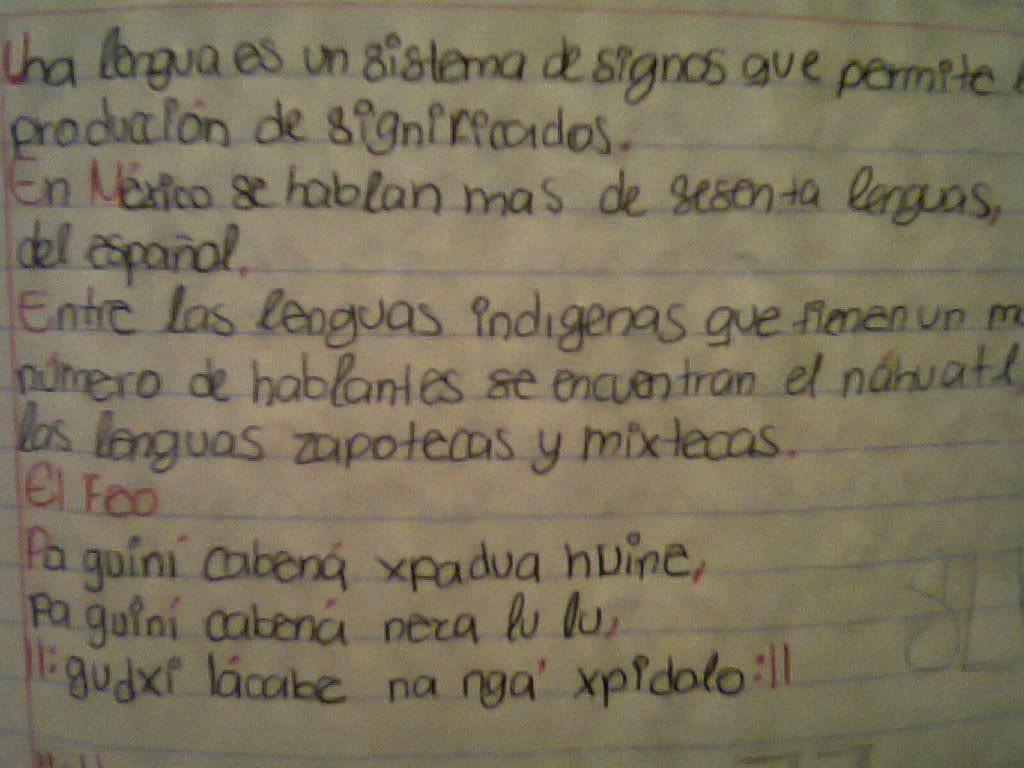 Una lengua es un sistema de signos que permite
producción de significados.
En México se hablan mas de sesenta lenguas,
del español.
Entre las lenguas indigenas que tienen un m
número de hablantes se encuentran el náhuatl,
las lenguas zapotecas y mixtecas.
El Feo
Pa guiní cabená xpadua huine,
Pa guiní cabená neza lu lu,
||: gudxi lácabe na nga' xpidolo :||